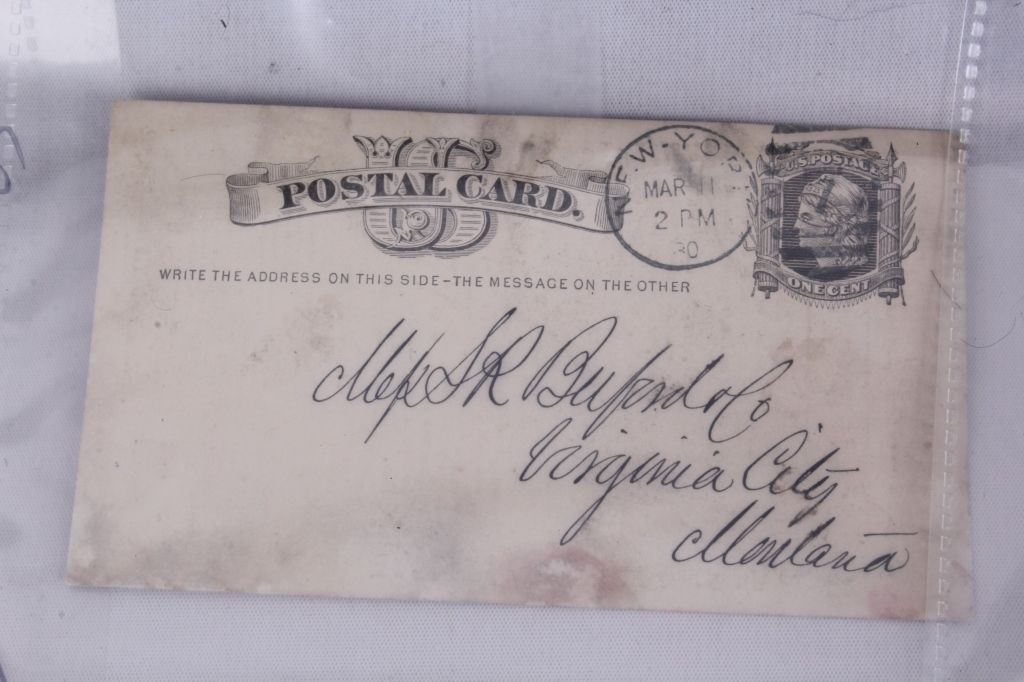 US
POSTAL CARD.
WRITE THE ADDRESS ON THIS SIDE–THE MESSAGE ON THE OTHER
NEW-YORK
MAR 11
2 PM
80
U.S. POSTAGE
1
ONE CENT
SR Buford & Co
Virginia City
Montana